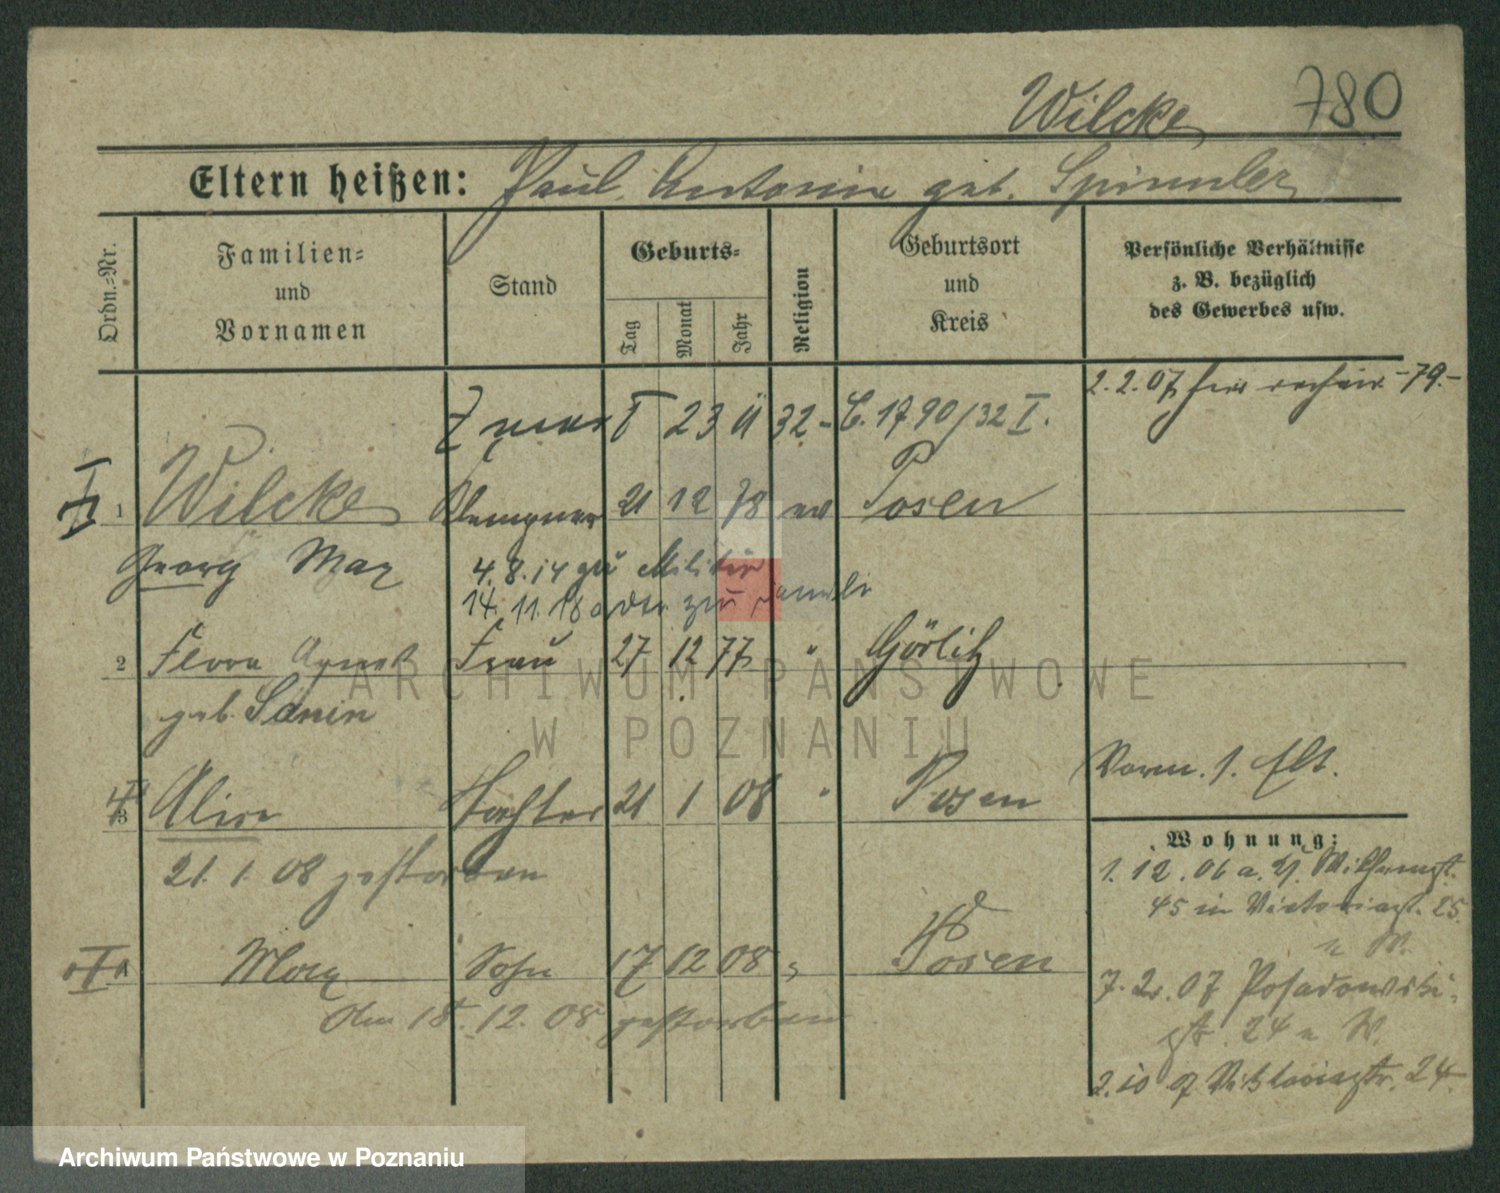 Wilcke 780
Eltern heißen: Paul, Antonie geb. Spinnler
Ordn.=Nr.
Familien= und Vornamen
Stand
Geburts=
Tag
Monat
Jahr
Religion
Geburtsort und Kreis
Persönliche Verhältnisse z. B. bezüglich des Gewerbes usw.
2.2.07 -79.-
23 32 - C. 1790/32 I.
1 Wilcke Klempner 21 12 78 ev Posen
Georg Max
4.8.14 zu Militär
14.11.18 zur Familie
2 Flora Agnes Frau 27 12 77 " Görlitz
geb.
Vorm. 1. Elt.
3 Alice Tochter 21 1 08 " Posen
21.1.08 gestorben
Wohnung:
1.12.06 a. 45 in Victoriastr. 25
n W.
Max Sohn 17 12 08 " Posen
Am 18.12.08 gestorben
7.2.07 Posadowski-
str. 24 n W.
2.10 Victoriastr. 24
ARCHIWUM PAŃSTWOWE
W POZNANIU
Archiwum Państwowe w Poznaniu